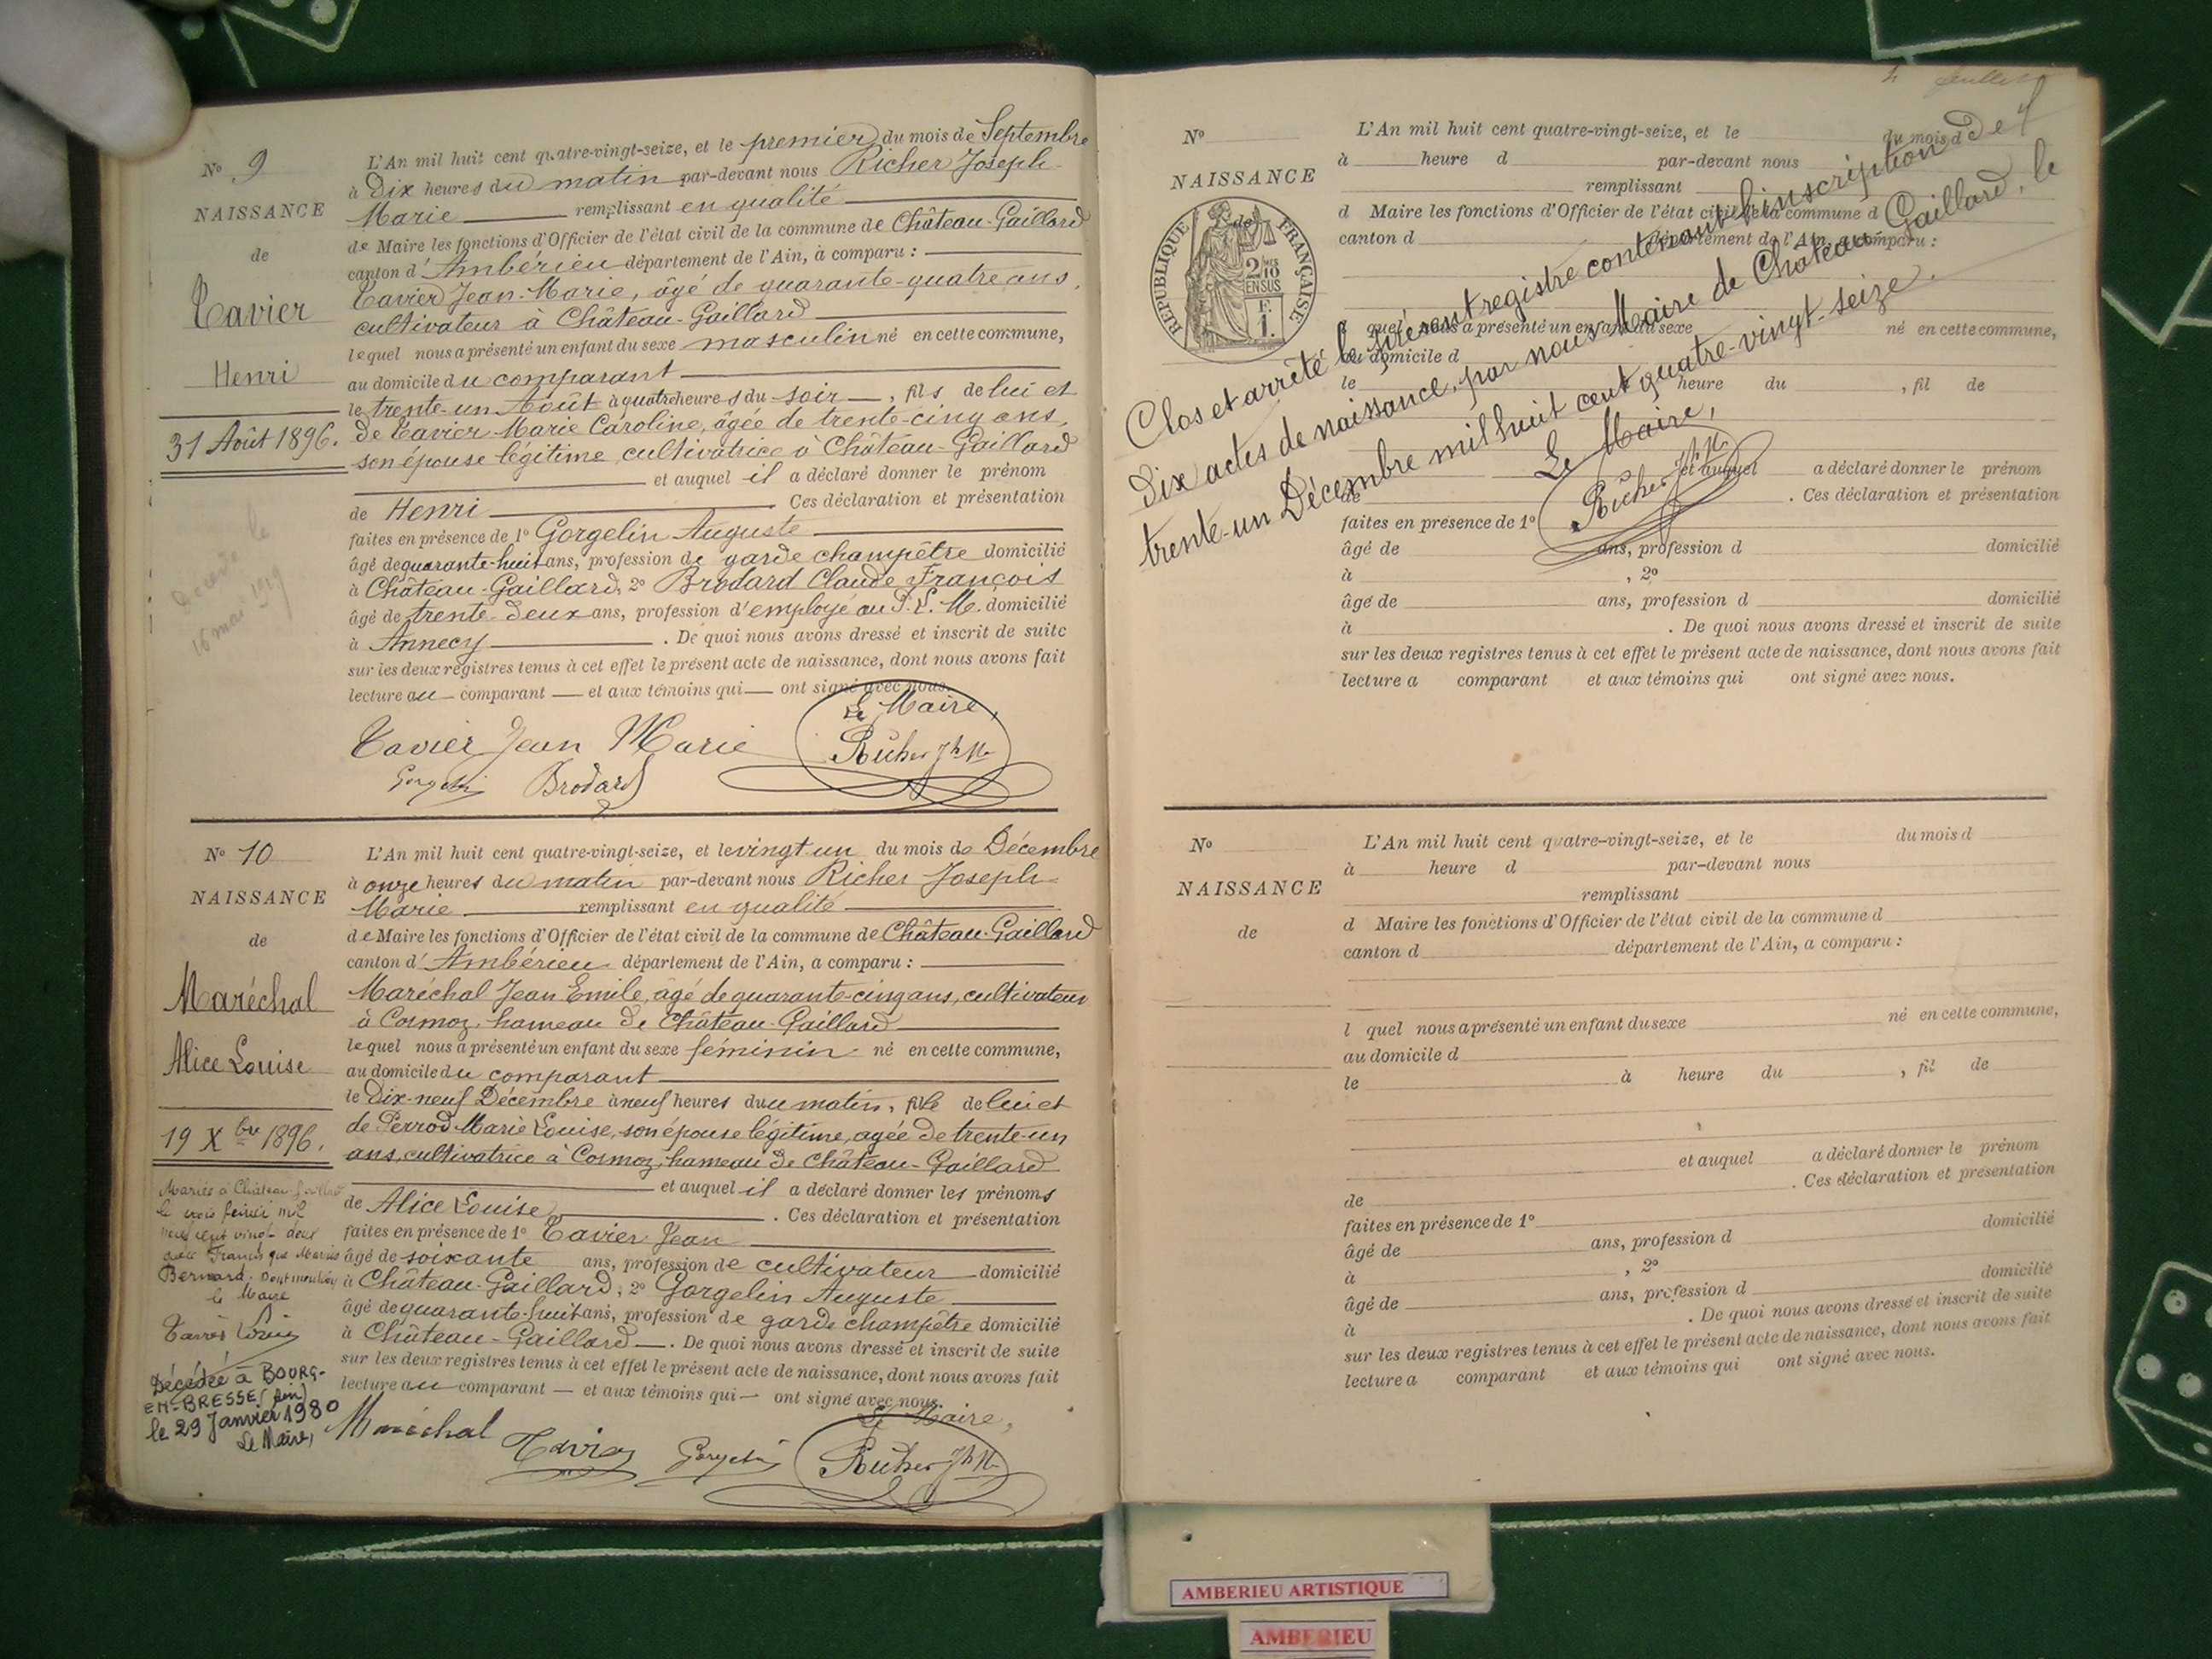 N° 9
NAISSANCE
de
Tavier
Henri
31 Août 1896.
Décédé le
16 mai 1919
L'An mil huit cent quatre-vingt-seize, et le premier du mois de Septembre
à dix heures du matin par-devant nous Richer Joseph
Marie remplissant en qualité
de Maire les fonctions d'Officier de l'état civil de la commune de Château-Gaillard
canton d'Ambérieu département de l'Ain, à comparu :
Tavier Jean-Marie, âgé de quarante-quatre ans,
cultivateur à Château-Gaillard
lequel nous a présenté un enfant du sexe masculin né en cette commune,
au domicile du comparant
le trente-un Août à quatre heures du soir, fils de lui et
de Tavier Marie Caroline, âgée de trente-cinq ans,
son épouse légitime cultivatrice à Château-Gaillard
et auquel il a déclaré donner le prénom
de Henri Ces déclaration et présentation
faites en présence de 1° Gorgelin Auguste
âgé de quarante-huit ans, profession de garde champêtre domicilié
à Château-Gaillard, 2° Brodard Claude François
âgé de trente-deux ans, profession d'employé au P. L. M. domicilié
à Annecy . De quoi nous avons dressé et inscrit de suite
sur les deux registres tenus à cet effet le présent acte de naissance, dont nous avons fait
lecture au comparant et aux témoins qui ont signé avec nous.
Le Maire,
Tavier Jean Marie Richer Jh Me
Gorgelin Brodard
N° 10
NAISSANCE
de
Maréchal
Alice Louise
19 Xbre 1896.
Mariée à Château-Gaillard
le trois février mil
neuf cent vingt deux
avec François que Marius
Bernard. Dont mention
le Maire
Décédée à BOURG-
EN-BRESSE (Ain)
le 29 Janvier 1980
Le Maire,
L'An mil huit cent quatre-vingt-seize, et le vingt-un du mois de Décembre
à onze heures du matin par-devant nous Richer Joseph
Marie remplissant en qualité
de Maire les fonctions d'Officier de l'état civil de la commune de Château-Gaillard
canton d'Ambérieu département de l'Ain, a comparu :
Maréchal Jean Emile, agé de quarante-cinq ans, cultivateur
à Cormoz, hameau de Château-Gaillard
lequel nous a présenté un enfant du sexe féminin né en cette commune,
au domicile du comparant
le dix-neuf Décembre à neuf heures du matin, fille de lui et
de Perrod Marie Louise, son épouse légitime, agée de trente-un
ans, cultivatrice à Cormoz, hameau de Château-Gaillard
et auquel il a déclaré donner les prénoms
de Alice Louise . Ces déclaration et présentation
faites en présence de 1° Tavier Jean
âgé de soixante ans, profession de cultivateur domicilié
à Château-Gaillard, 2° Gorgelin Auguste
âgé de quarante-huit ans, profession de garde champêtre domicilié
à Château-Gaillard. De quoi nous avons dressé et inscrit de suite
sur les deux registres tenus à cet effet le présent acte de naissance, dont nous avons fait
lecture au comparant et aux témoins qui ont signé avec nous.
Le Maire,
Maréchal Tavier Gorgelin Richer Jh Me
N°
NAISSANCE
de
RÉPUBLIQUE FRANÇAISE
2/10 MES
EN SUS
F.
1.
L'An mil huit cent quatre-vingt-seize, et le du mois d
à heure d par-devant nous
remplissant
d Maire les fonctions d'Officier de l'état civil de la commune d
canton d département de l'Ain, a comparu :
l quel nous a présenté un enfant du sexe né en cette commune,
au domicile d
le heure du , fil de
et auquel a déclaré donner le prénom
de . Ces déclaration et présentation
faites en présence de 1°
âgé de ans, profession d domicilié
à , 2°
âgé de ans, profession d domicilié
à . De quoi nous avons dressé et inscrit de suite
sur les deux registres tenus à cet effet le présent acte de naissance, dont nous avons fait
lecture a comparant et aux témoins qui ont signé avec nous.
Clos et arrêté le présent registre contenant l'inscription de
dix actes de naissance, par nous Maire de Château-Gaillard, le
trente-un Décembre mil huit cent quatre-vingt-seize.
Le Maire,
Richer Jh Me
N°
NAISSANCE
de
L'An mil huit cent quatre-vingt-seize, et le du mois d
à heure d par-devant nous
remplissant
d Maire les fonctions d'Officier de l'état civil de la commune d
canton d département de l'Ain, a comparu :
l quel nous a présenté un enfant du sexe né en cette commune,
au domicile d
le à heure du , fil de
et auquel a déclaré donner le prénom
de . Ces déclaration et présentation
faites en présence de 1° domicilié
âgé de ans, profession d
à , 2° domicilié
âgé de ans, profession d
à . De quoi nous avons dressé et inscrit de suite
sur les deux registres tenus à cet effet le présent acte de naissance, dont nous avons fait
lecture a comparant et aux témoins qui ont signé avec nous.
AMBERIEU ARTISTIQUE
AMBERIEU